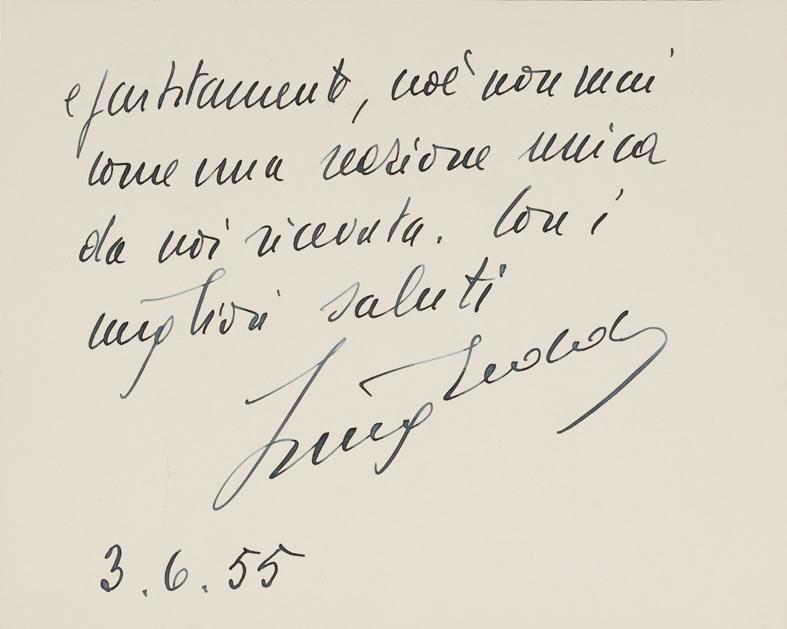 e partitamente, noè non mai
come una nazione unica
da noi ricevuta. Con i
migliori saluti
Luigi
3.6.55